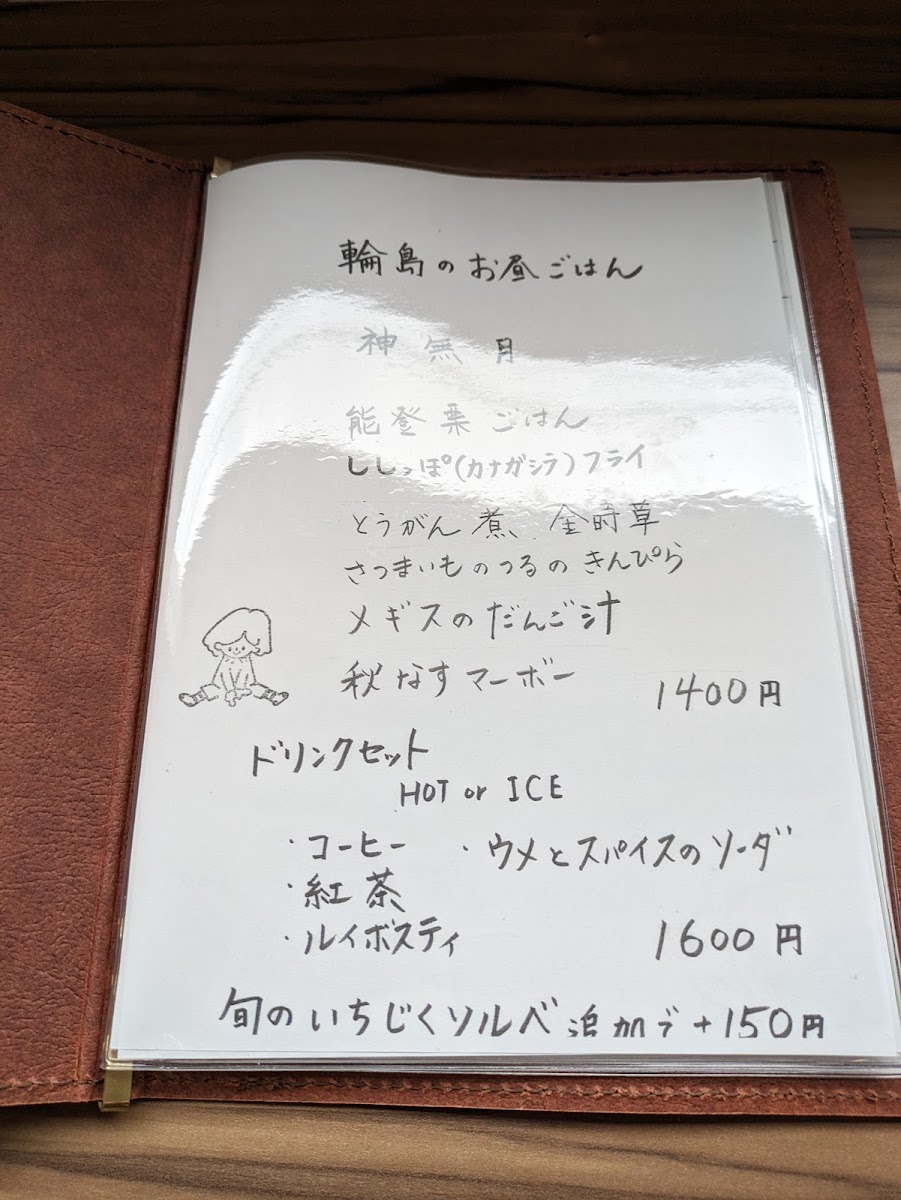 輪島のお昼ごはん
神無月
能登栗ごはん
ししっぽ(カナガシラ)フライ
とうがん煮、金時草
さつまいものつるのきんぴら
メギスのだんご汁
秋なすマーボー
1400円
ドリンクセット
HOT or ICE
・コーヒー ・ウメとスパイスのソーダ
・紅茶
・ルイボスティ
1600円
旬のいちじくソルベ追加で+150円